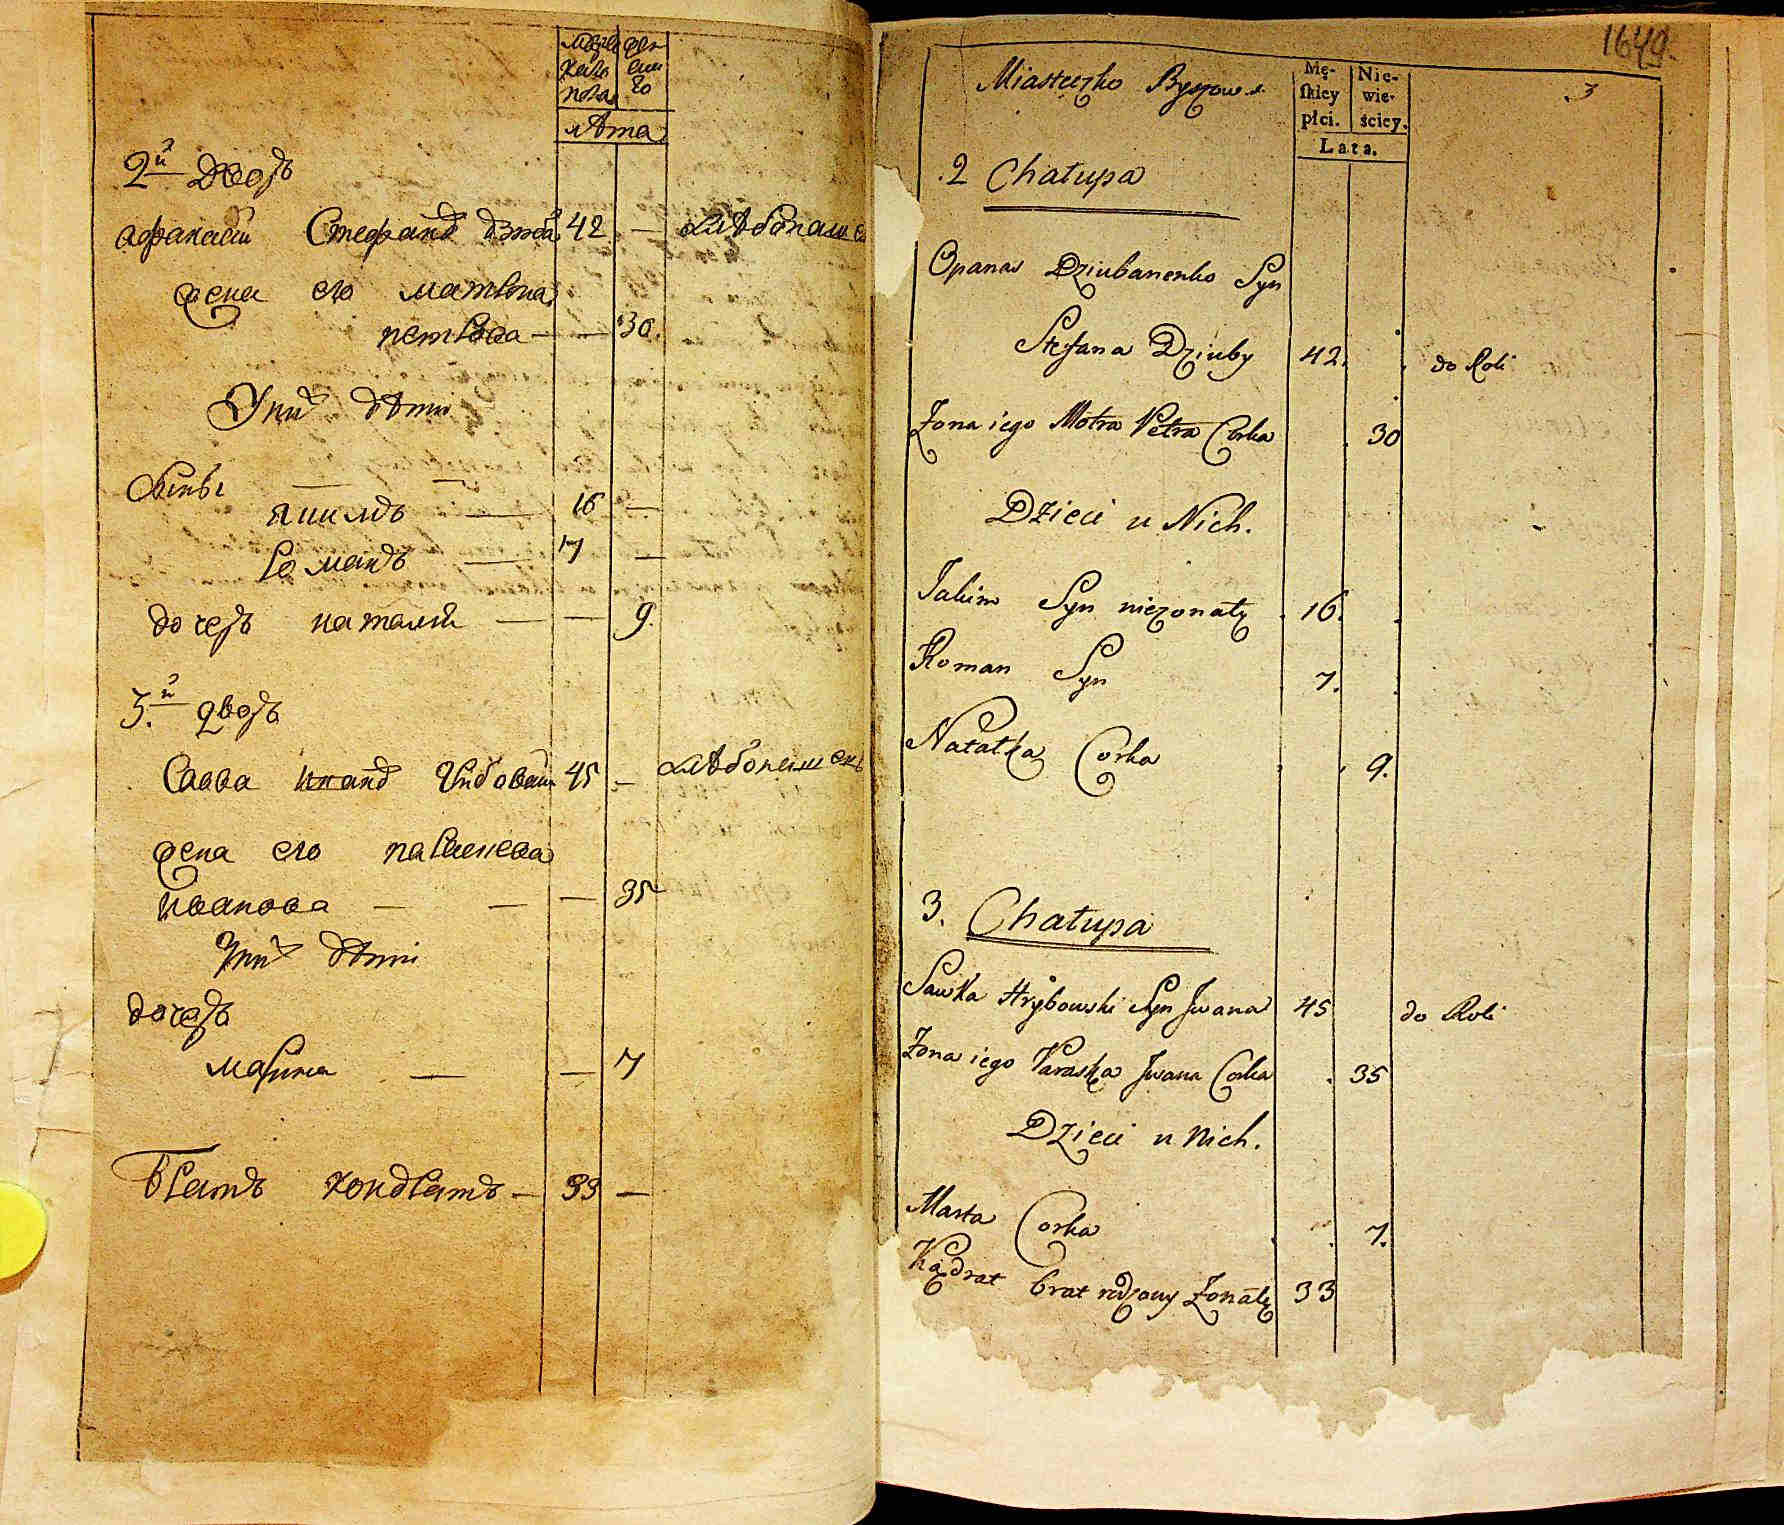 мужеска
пола
женскаго
лѣта
2й дворъ
Афанасій Стефанъ дзюба 42 — хлѣбопашецъ
жена его матрона
петрова — — 30.
У них дѣти
сыны — —
якимъ — 16 —
романъ — 7 —
дочерь наталия — — 9.
3.й дворъ
Савва иванъ грибовский 45 — хлѣбопашецъ
жена его параскева
иванова — — — 35
У них дѣти
дочерь
марина — — 7
братъ кондратъ — 33 —
1649.
3
Miasteczko
Mę-
skiey
płci.
Nie-
wie-
ściey.
Lata.
.2 Chałupa
Opanas Dziubanenko Syn
Stefana Dziuby 42. do Roli
Żona iego Motra Petra Corka 30
Dzieci u Nich.
Jakim Syn nieżonaty 16.
Roman Syn 7.
Natałka Corka 9.
3. Chałupa
Sawka Hrybowski Syn Jwana 45 do Roli
Żona iego Paraska Jwana Corka 35
Dzieci u Nich.
Marta Corka 7.
Kądrat brat rodzony Żonaty 33